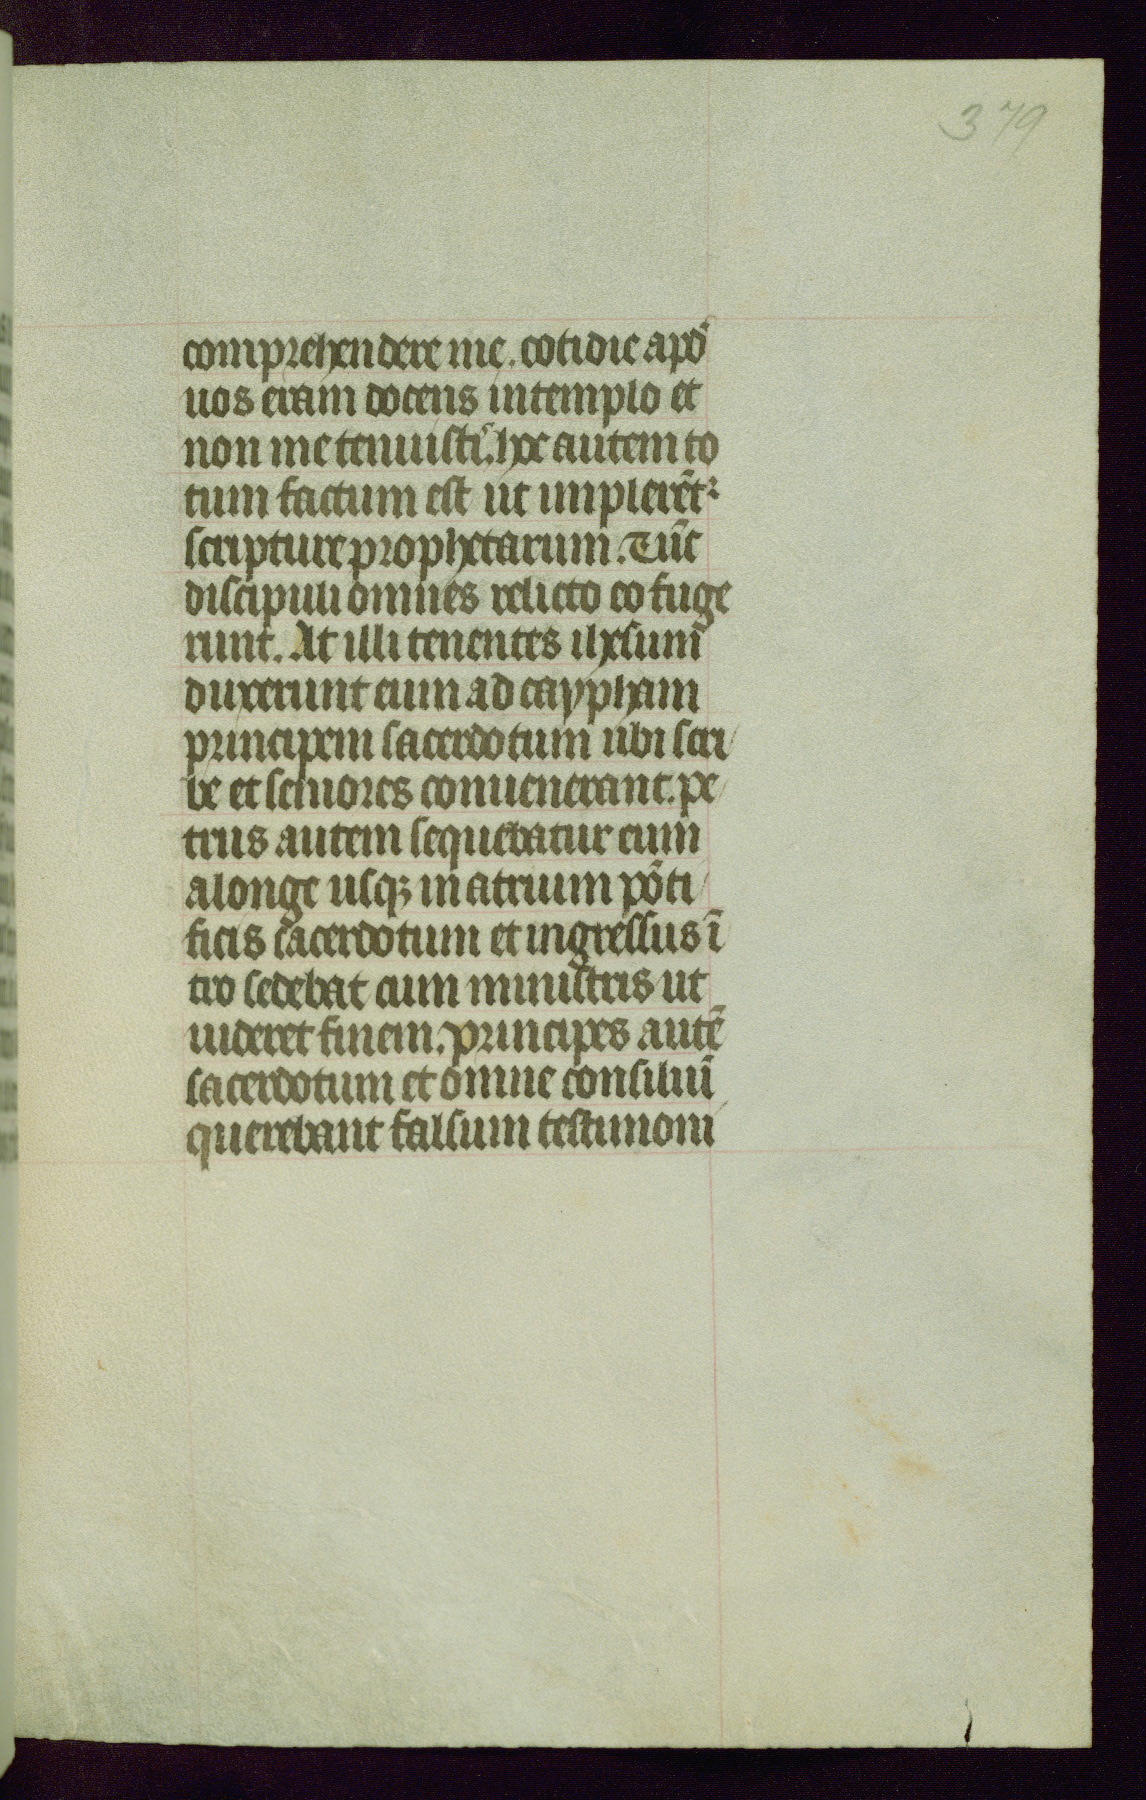 379
comprehendere me. cotidie apd̄
uos eram docens in templo et
non me tenuisti᷒. hoc autem to
tum factum est ut implerēt᷑
scripture prophetarum. Tūc
discipuli omnes relicto eo fuge
runt. At illi tenentes ihesum
duxerunt eum ad caypham
principem sacerdotum ubi scri
be et seniores conuenerant. pe
trus autem sequebatur eum
a longe usqꝫ in atrium pōti
ficis sacerdotum et ingressus ī
tro sedebat cum ministris ut
uideret finem. principes autē
sacerdotum et omne consiliū
querebant falsum testimoni